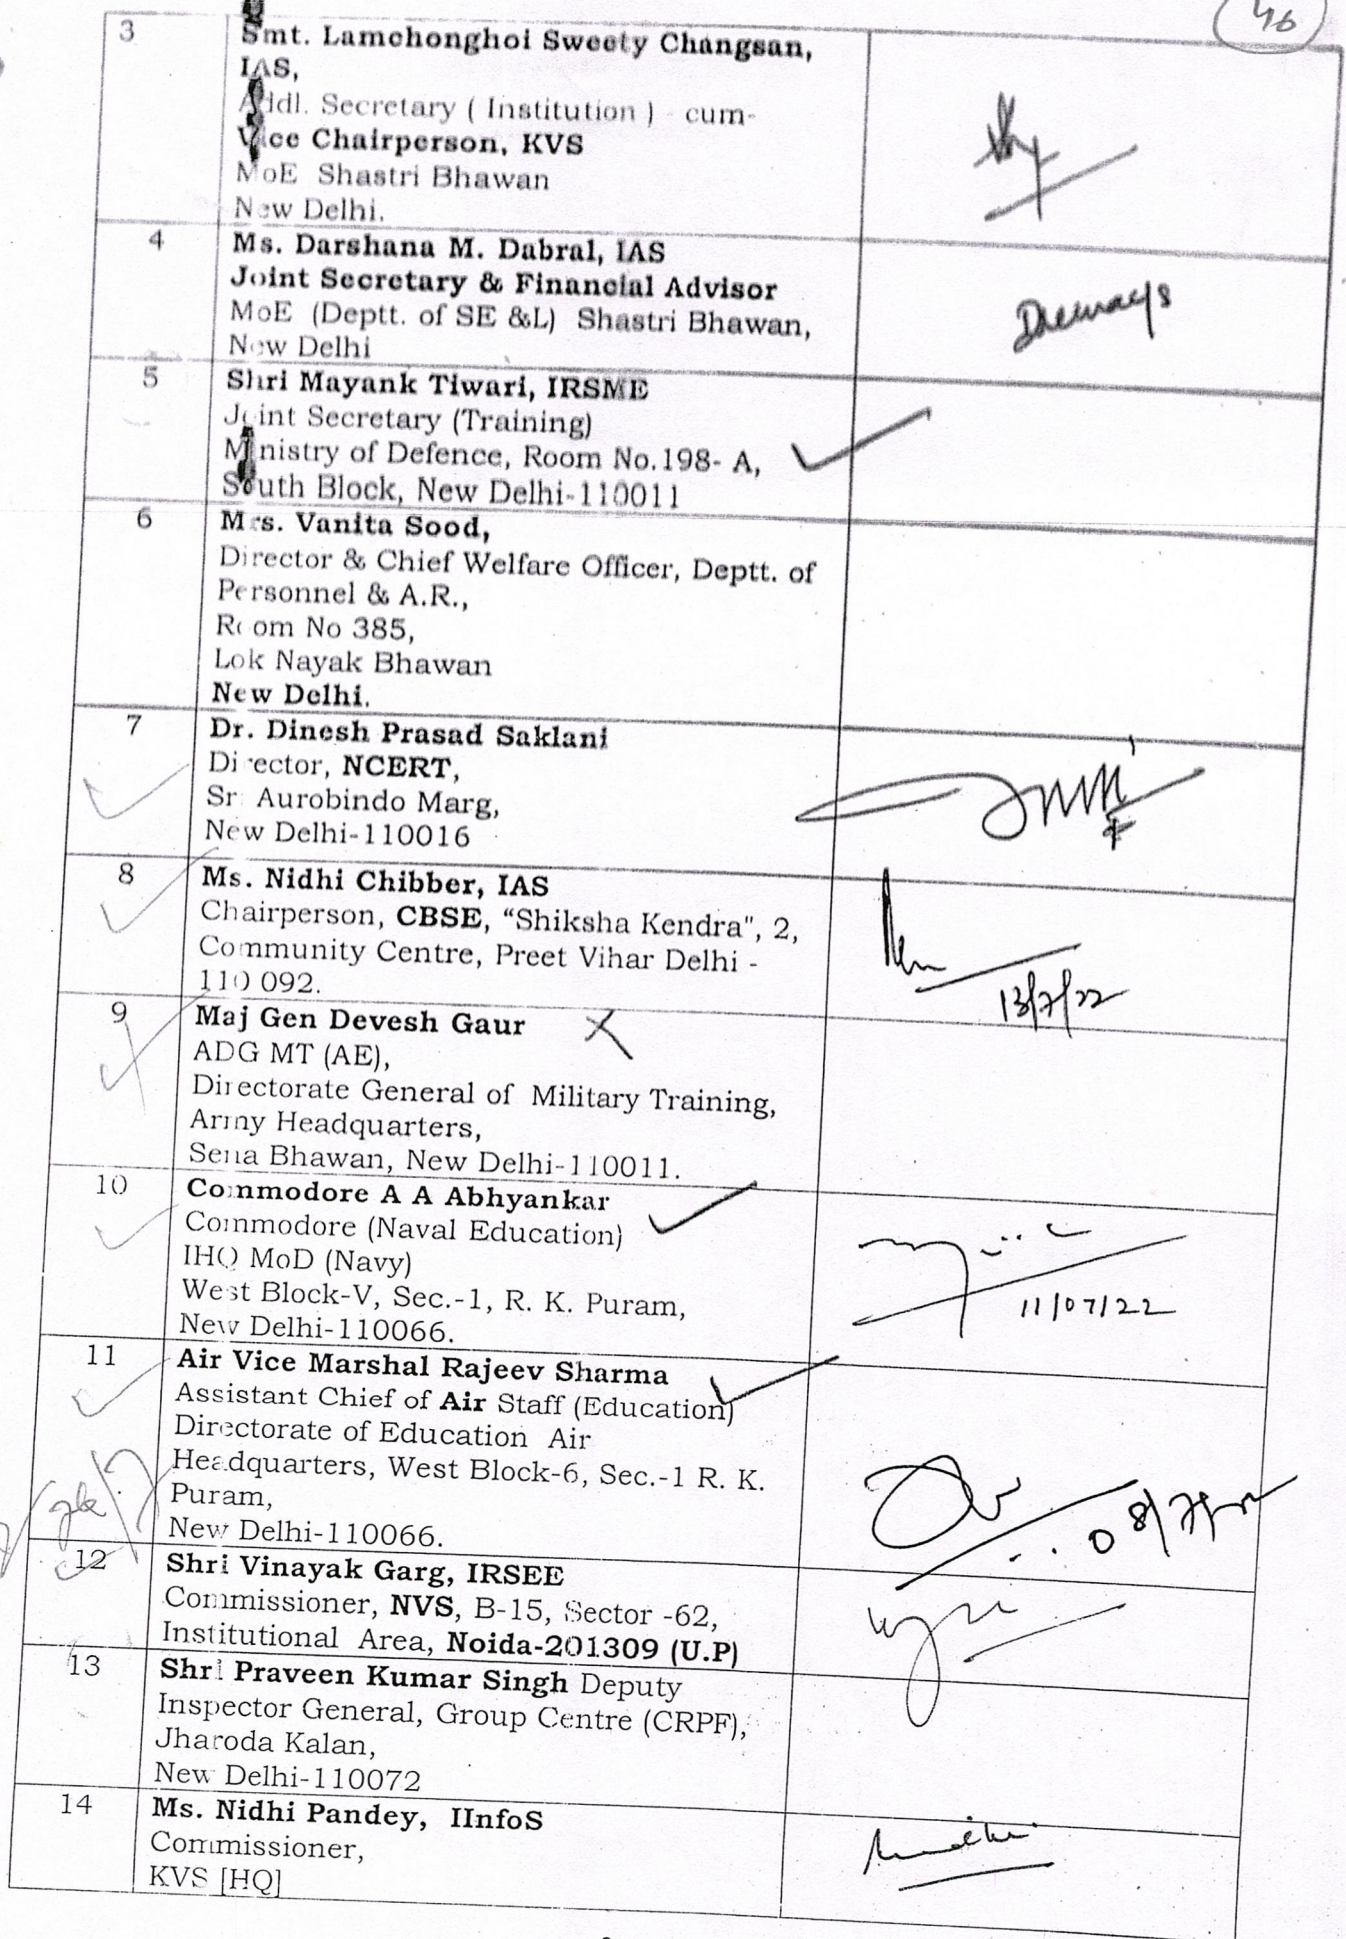 46
3
Smt. Lamchonghoi Sweety Changsan,
IAS,
Addl. Secretary ( Institution ) - cum-
Vice Chairperson, KVS
MoE Shastri Bhawan
New Delhi.
4
Ms. Darshana M. Dabral, IAS
Joint Secretary & Financial Advisor
MoE (Deptt. of SE &L) Shastri Bhawan,
New Delhi
5
Shri Mayank Tiwari, IRSME
Joint Secretary (Training)
Ministry of Defence, Room No.198- A,
South Block, New Delhi-110011
6
Mrs. Vanita Sood,
Director & Chief Welfare Officer, Deptt. of
Personnel & A.R.,
Room No 385,
Lok Nayak Bhawan
New Delhi.
7
Dr. Dinesh Prasad Saklani
Director, NCERT,
Sri Aurobindo Marg,
New Delhi-110016
8
Ms. Nidhi Chibber, IAS
Chairperson, CBSE, “Shiksha Kendra", 2,
Community Centre, Preet Vihar Delhi -
110 092.
13/7/22
9
Maj Gen Devesh Gaur
ADG MT (AE),
Directorate General of Military Training,
Army Headquarters,
Sena Bhawan, New Delhi-110011.
10
Commodore A A Abhyankar
Commodore (Naval Education)
IHQ MoD (Navy)
West Block-V, Sec.-1, R. K. Puram,
New Delhi-110066.
11/07/22
11
Air Vice Marshal Rajeev Sharma
Assistant Chief of Air Staff (Education)
Directorate of Education Air
Headquarters, West Block-6, Sec.-1 R. K.
Puram,
New Delhi-110066.
12
Shri Vinayak Garg, IRSEE
Commissioner, NVS, B-15, Sector -62,
Institutional Area, Noida-201309 (U.P)
13
Shri Praveen Kumar Singh Deputy
Inspector General, Group Centre (CRPF),
Jharoda Kalan,
New Delhi-110072
14
Ms. Nidhi Pandey, IInfoS
Commissioner,
KVS [HQ]